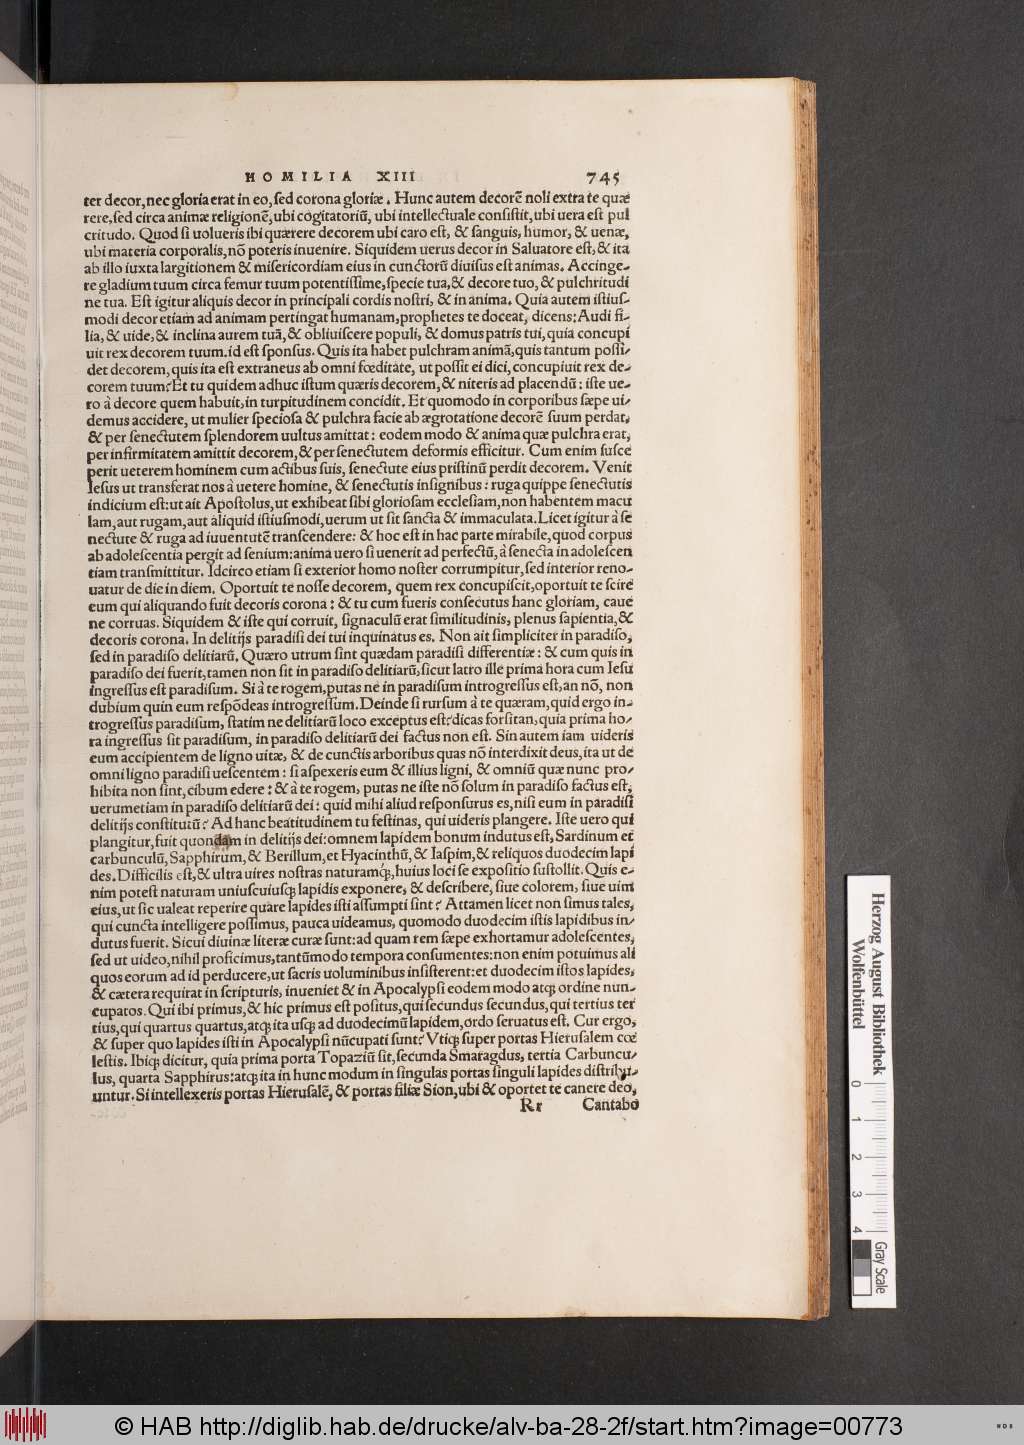 HOMILIA XIII 745
ter decor, nec gloria erat in eo, sed corona gloriæ. Hunc autem decorẽ noli extra te quæ
rere, sed circa animæ religionẽ, ubi cogitatoriũ, ubi intellectuale consistit, ubi uera est pul
critudo. Quod si uolueris ibi quærere decorem ubi caro est, & sanguis, humor, & uenæ,
ubi materia corporalis, nõ poteris inuenire. Siquidem uerus decor in Saluatore est, & ita
ab illo iuxta largitionem & misericordiam eius in cunctorũ diuisus est animas. Accinge-
re gladium tuum circa femur tuum potentissime, specie tua, & decore tuo, & pulchritudi
ne tua. Est igitur aliquis decor in principali cordis nostri, & in anima. Quia autem istius-
modi decor etiam ad animam pertingat humanam, prophetes te doceat, dicens: Audi fi-
lia, & uide, & inclina aurem tuã, & obliuiscere populi, & domus patris tui, quia concupi
uit rex decorem tuum. id est sponsus. Quis ita habet pulchram animã, quis tantum possi-
det decorem, quis ita est extraneus ab omni fœditate, ut possit ei dici, concupiuit rex de-
corem tuum? Et tu quidem adhuc istum quæris decorem, & niteris ad placendũ: iste ue-
ro à decore quem habuit, in turpitudinem concidit. Et quomodo in corporibus sæpe ui-
demus accidere, ut mulier speciosa & pulchra facie ab ægrotatione decorẽ suum perdat,
& per senectutem splendorem uultus amittat: eodem modo & anima quæ pulchra erat,
per infirmitatem amittit decorem, & per senectutem deformis efficitur. Cum enim susce
perit ueterem hominem cum actibus suis, senectute eius pristinũ perdit decorem. Venit
Iesus ut transferat nos à uetere homine, & senectutis insignibus: ruga quippe senectutis
indicium est: ut ait Apostolus, ut exhibeat sibi gloriosam ecclesiam, non habentem macu
lam, aut rugam, aut aliquid istiusmodi, uerum ut sit sancta & immaculata. Licet igitur à se
nectute & ruga ad iuuentutẽ transcendere: & hoc est in hac parte mirabile, quod corpus
ab adolescentia pergit ad senium: anima uero si uenerit ad perfectũ, à senecta in adolescen
tiam transmittitur. Idcirco etiam si exterior homo noster corrumpitur, sed interior reno-
uatur de die in diem. Oportuit te nosse decorem, quem rex concupiscit, oportuit te scire
eum qui aliquando fuit decoris corona: & tu cum fueris consecutus hanc gloriam, caue
ne corruas. Siquidem & iste qui corruit, signaculũ erat similitudinis, plenus sapientia, &
decoris corona. In delitijs paradisi dei tui inquinatus es. Non ait simpliciter in paradiso,
sed in paradiso delitiarũ. Quæro utrum sint quædam paradisi differentiæ: & cum quis in
paradiso dei fuerit, tamen non sit in paradiso delitiarũ, sicut latro ille prima hora cum Iesu
ingressus est paradisum. Si à te rogem, putas ne in paradisum introgressus est, an nõ, non
dubium quin eum respõdeas introgressum. Deinde si rursum à te quæram, quid ergo in-
trogressus paradisum, statim ne delitiarũ loco exceptus est? dicas forsitan, quia prima ho-
ra ingressus sit paradisum, in paradiso delitiarũ dei factus non est. Sin autem iam uideris
eum accipientem de ligno uitæ, & de cunctis arboribus quas nõ interdixit deus, ita ut de
omni ligno paradisi uescentem: si aspexeris eum & illius ligni, & omniũ quæ nunc pro-
hibita non sint, cibum edere: & à te rogem, putas ne iste nõ solum in paradiso factus est,
uerumetiam in paradiso delitiarũ dei: quid mihi aliud responsurus es, nisi eum in paradisi
delitijs constitutũ? Ad hanc beatitudinem tu festinas, qui uideris plangere. Iste uero qui
plangitur, fuit quondam in delitijs dei: omnem lapidem bonum indutus est, Sardinum et
carbunculũ, Sapphirum, & Berillum, et Hyacinthũ, & Iaspim, & reliquos duodecim lapi
des. Difficilis est, & ultra uires nostras naturamq́;, huius loci se expositio sustollit. Quis e-
nim potest naturam uniuscuiusq; lapidis exponere, & describere, siue colorem, siue uim
eius, ut sic ualeat reperire quare lapides isti assumpti sint? Attamen licet non simus tales,
qui cuncta intelligere possimus, pauca uideamus, quomodo duodecim istis lapidibus in-
dutus fuerit. Sicui diuinæ literæ curæ sunt: ad quam rem sæpe exhortamur adolescentes,
sed ut uideo, nihil proficimus, tantũmodo tempora consumentes: non enim potuimus ali
quos eorum ad id perducere, ut sacris uoluminibus insisterent: et duodecim istos lapides,
& cætera requirat in scripturis, inueniet & in Apocalypsi eodem modo atq; ordine nun-
cupatos. Qui ibi primus, & hic primus est positus, qui secundus secundus, qui tertius ter
tius, qui quartus quartus, atq; ita usq; ad duodecimũ lapidem, ordo seruatus est. Cur ergo,
& super quo lapides isti in Apocalypsi nũcupati sunt? Vtiq; super portas Hierusalem cœ
lestis. Ibiq; dicitur, quia prima porta Topaziũ sit, secunda Smaragdus, tertia Carbuncu-
lus, quarta Sapphirus: atq; ita in hunc modum in singulas portas singuli lapides distribu-
untur. Si intellexeris portas Hierusalẽ, & portas filiæ Sion, ubi & oportet te canere deo,
Rr Cantabo
Herzog August Bibliothek
Wolfenbüttel
0 1 2 3 4
Gray Scale
© HAB http://diglib.hab.de/drucke/alv-ba-28-2f/start.htm?image=00773